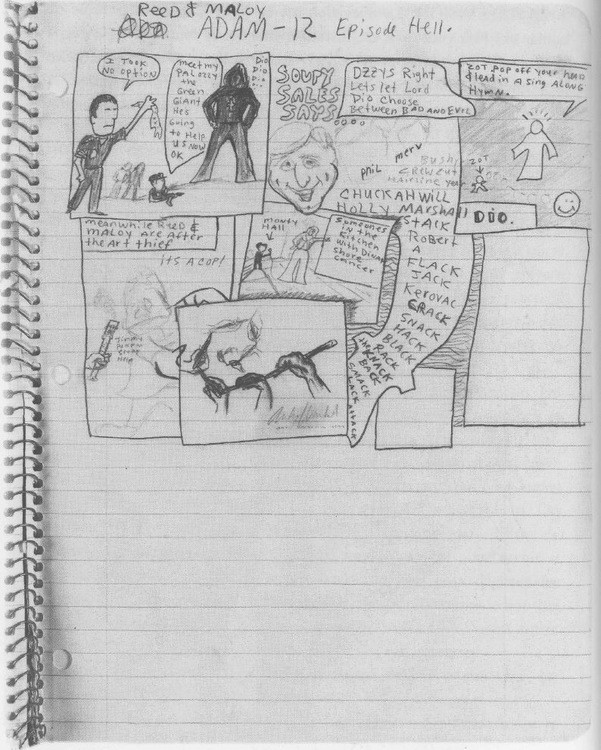 REED & MALOY
ADAM-12 Episode Hell.
I TOOK
NO OPTION
meet my
PAL OZZY
the
Green
Giant
Hes
Going
to Help
US NOW
OK
DIO
DIO
DIO
DIO
SOUPY
SALES
SAYS
OZZYS Right
Lets let Lord
Dio choose
Between BAD AND EVIL
phil
merv
BUSHY
CREWCUT
HAIRLINE
CHUCKAHWILL
HOLLY MARSHALL
STACK
RoBert
A
FLACK
JACK
Kerovac
CRACK
SNACK
HACK
BLACK
RACK
KNACK
BACK
SMACK
ZOT POP OFF YOUR HEAD
& lead in A sing ALONG
HYMN.
ZOT
DIO.
meanwhile REED &
MALOY ARE AFTER
the ART thief
ITS A COP!
MONTY
HALL
Someones
IN the
Kitchen
with DINAH
shore
CANCER